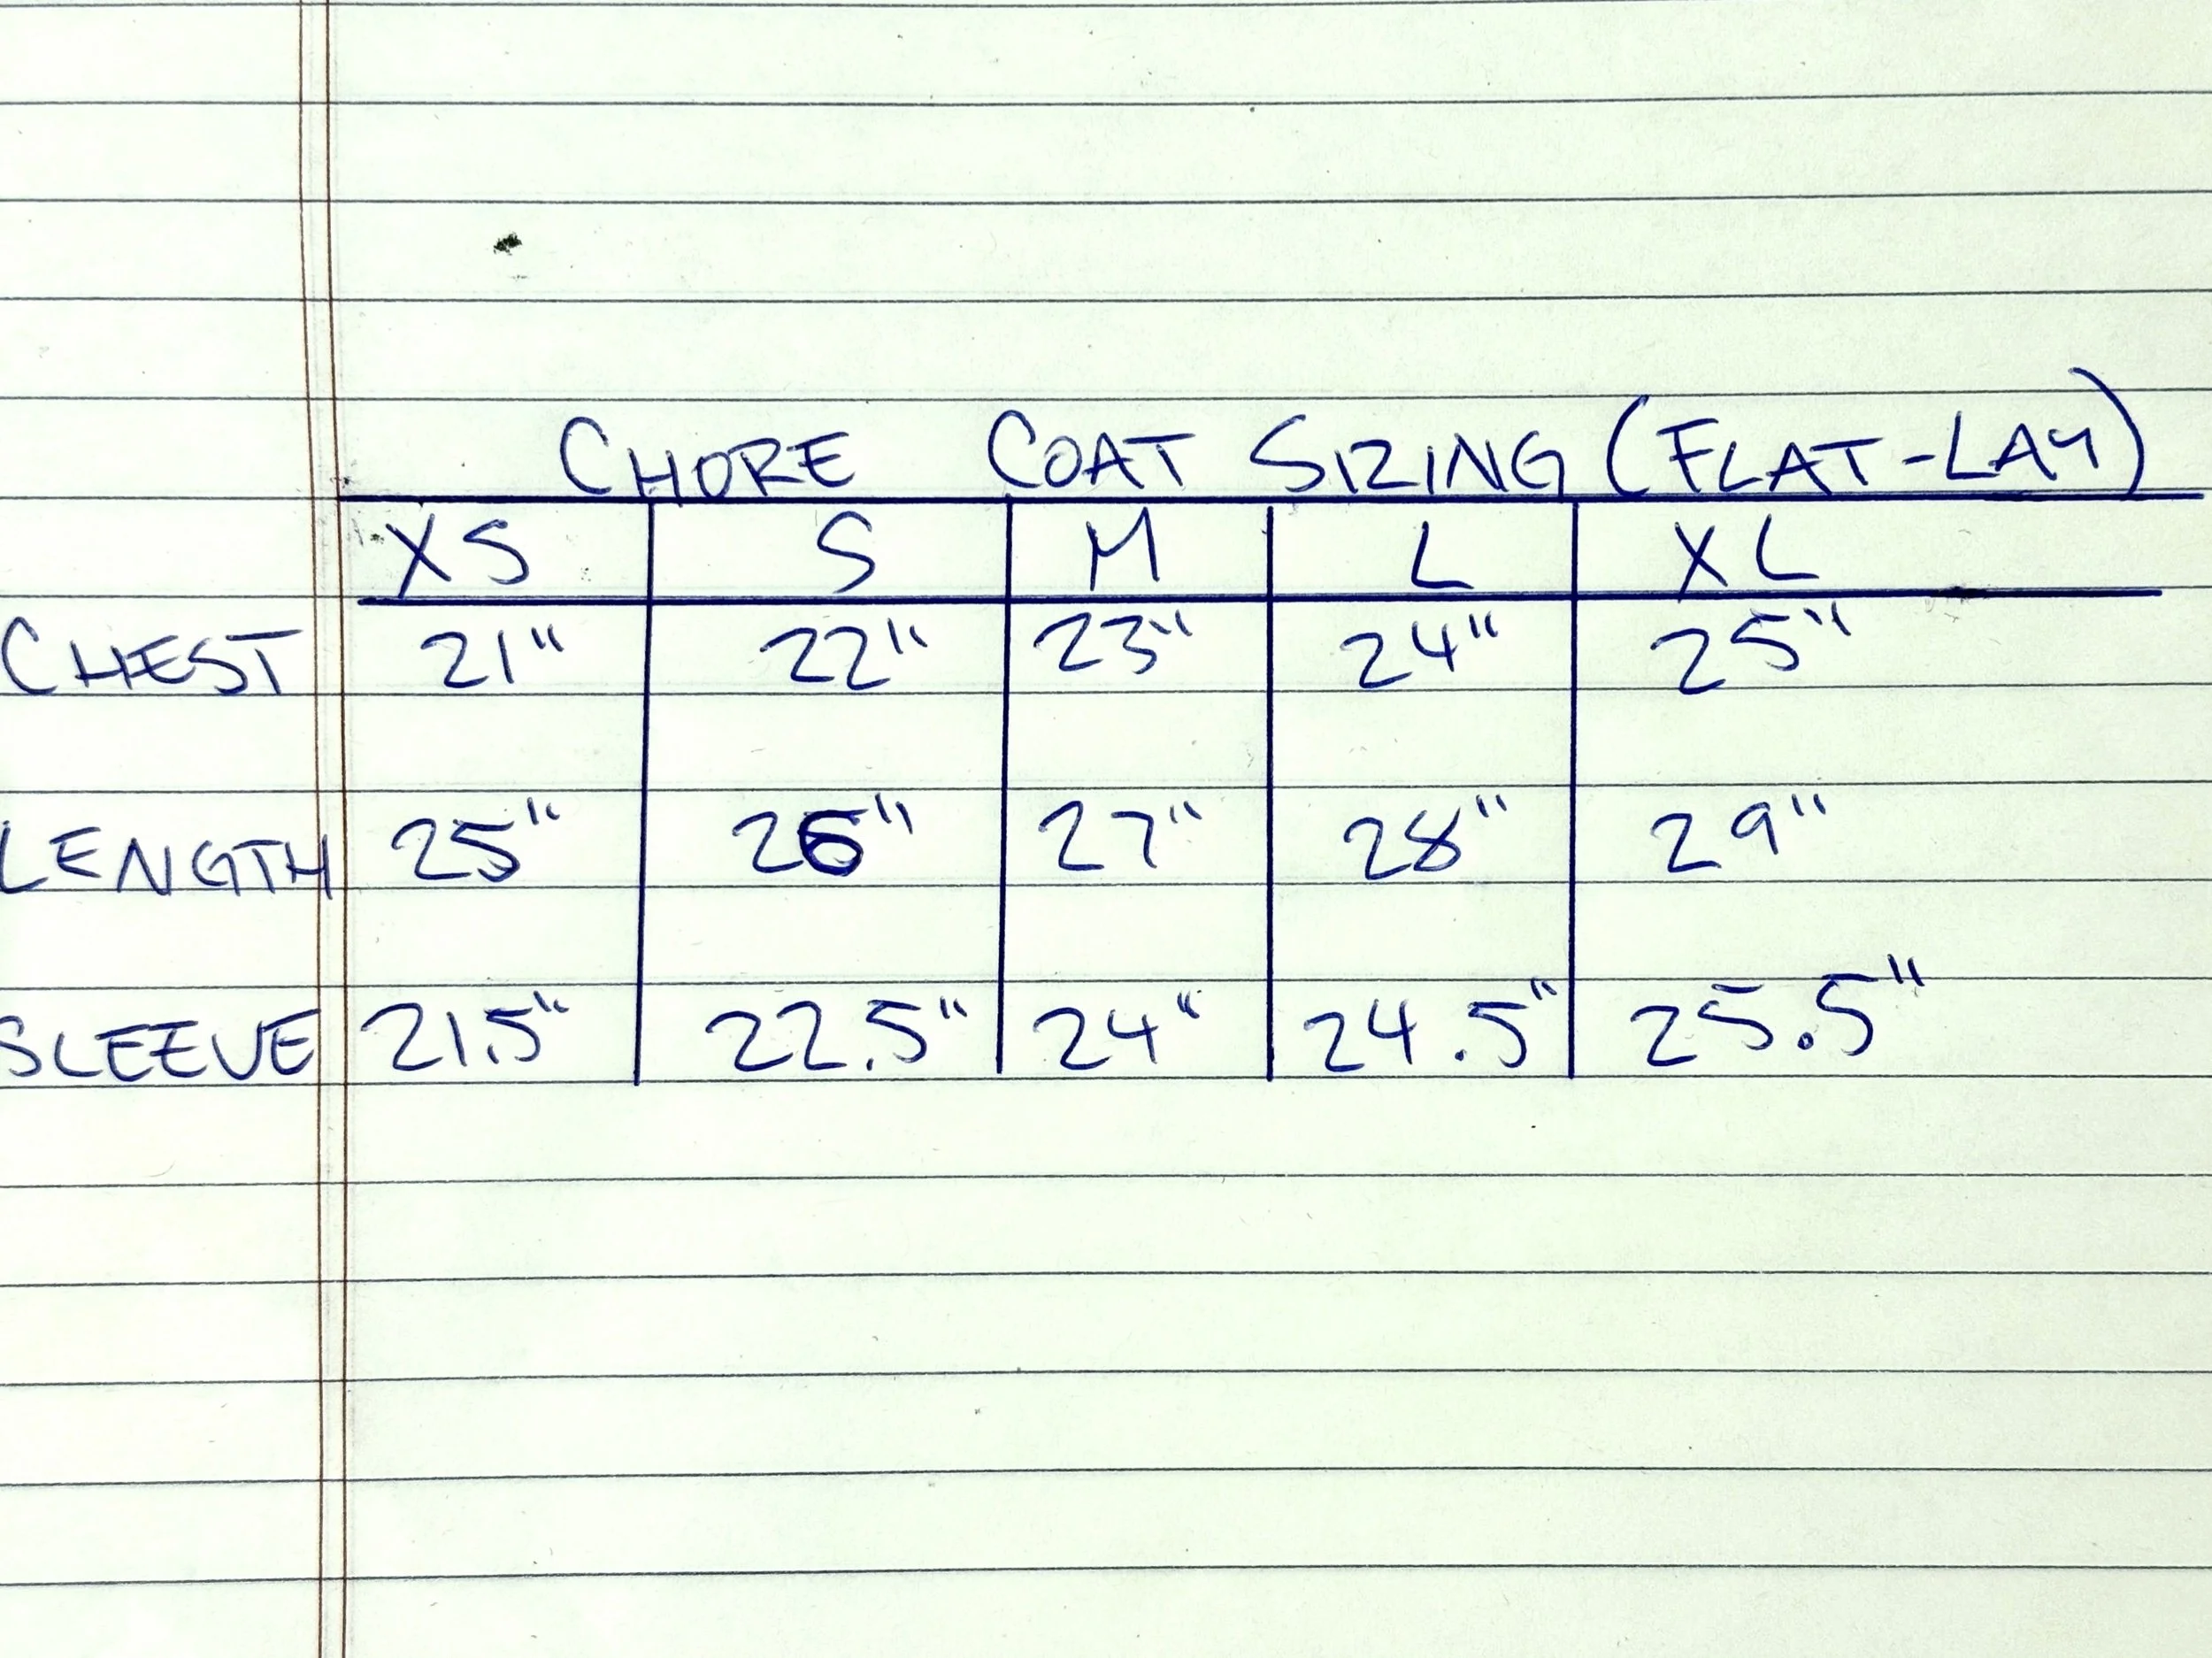 CHORE COAT SIZING (FLAT-LAY)
XS S M L XL
CHEST 21" 22" 23" 24" 25"
LENGTH 25" 26" 27" 28" 29"
SLEEVE 21.5" 22.5" 24" 24.5" 25.5"